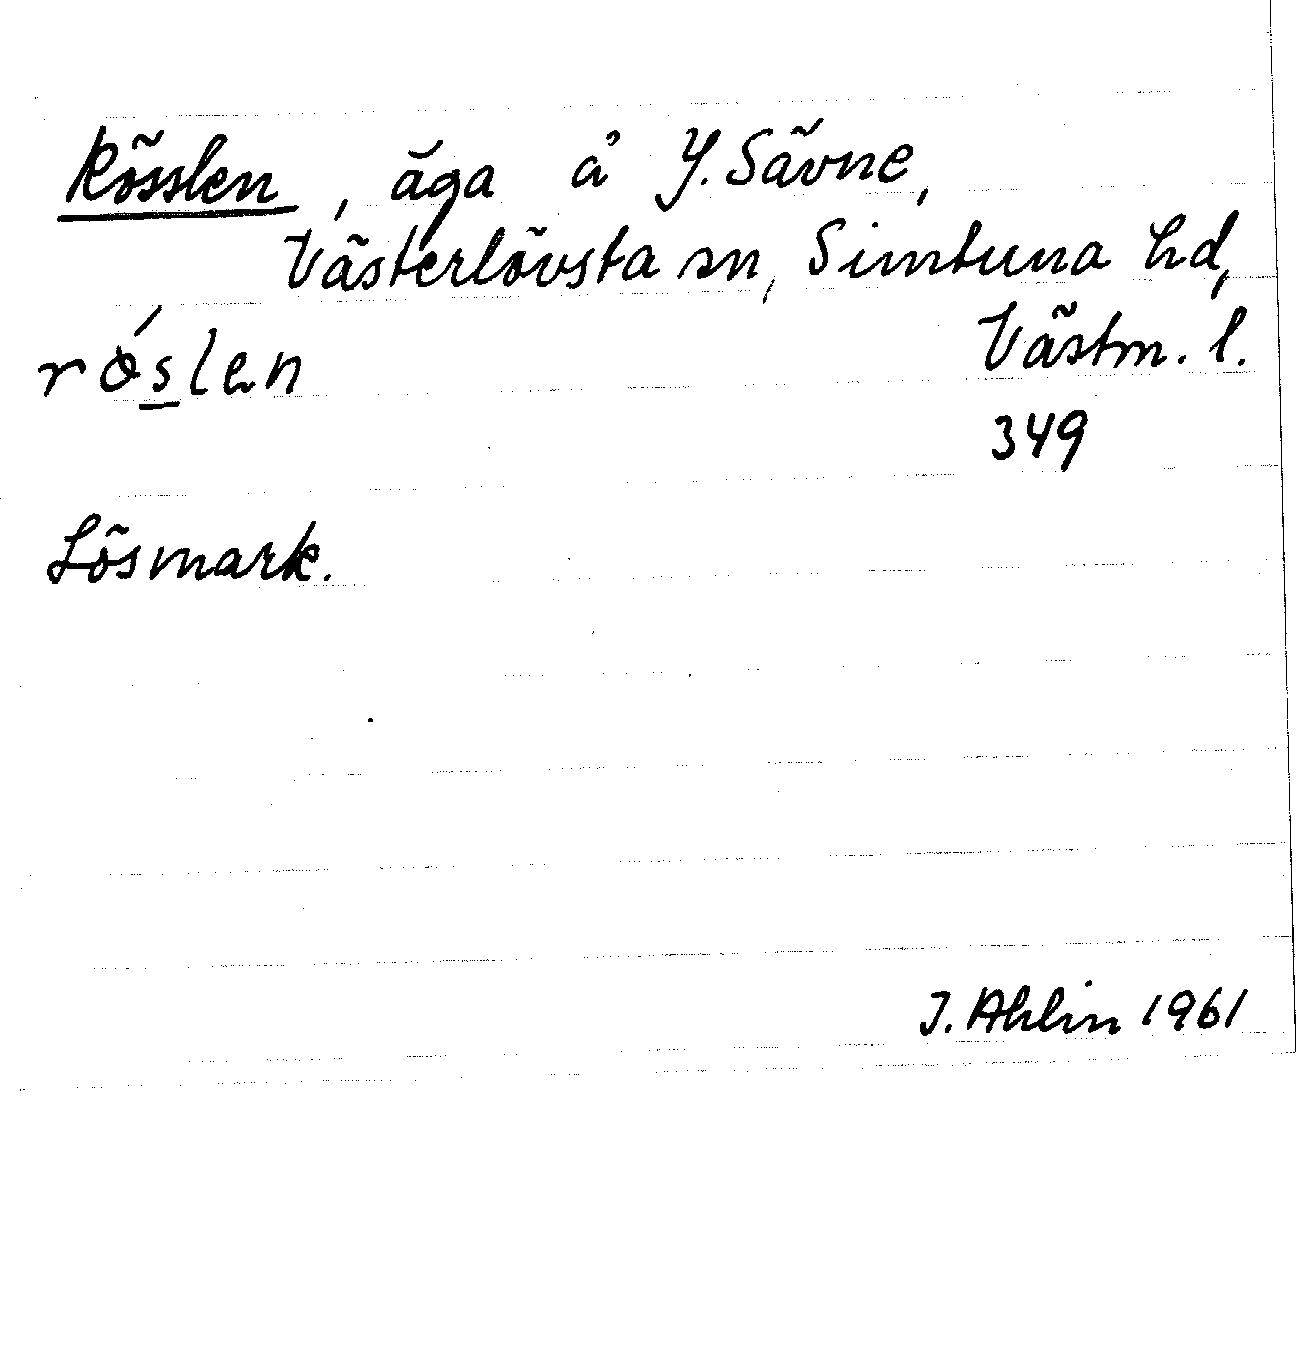 Rösslen, äga å Y. Sävne,
Västerlövsta sn, Simtuna hd,
Västm. l.
röslen
349
Lösmark.
J. Ahlin 1961